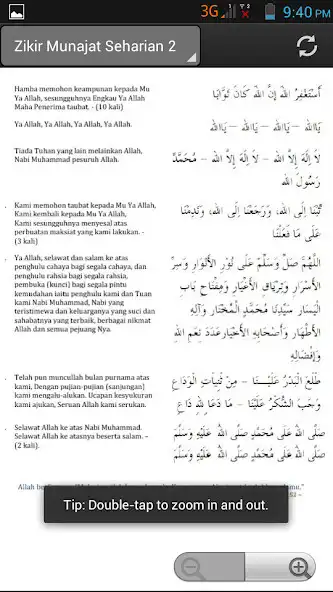 3G 9:40 PM
Zikir Munajat Seharian 2
Hamba memohon keampunan kepada Mu
Ya Allah, sesungguhnya Engkau Ya Allah
Maha Penerima taubat. - (10 kali)
أَسْتَغْفِرُ اللهَ إِنَّ اللهَ كَانَ تَوَّابًا
Ya Allah, Ya Allah, Ya Allah, Ya Allah.
يَاالله – يَاالله – يَاالله – يَاالله
Tiada Tuhan yang lain melainkan Allah,
Nabi Muhammad pesuruh Allah.
لَا إِلَهَ إِلَّا الله – لَا إِلَهَ إِلَّا الله – مُحَمَّدٌ
رَسُولُ الله
Kami memohon taubat kepada Mu Ya Allah,
Kami kembali kepada Mu Ya Allah,
Kami sesungguhnya menyesal atas
perbuatan maksiat yang kami lakukan. -
(3 kali)
تُبْنَا إِلَى الله، وَرَجَعْنَا إِلَى الله، وَنَدِمْنَا
عَلَى مَا فَعَلْنَا
Ya Allah, selawat dan salam ke atas
penghulu cahaya bagi segala cahaya, dan
penghulu rahsia bagi segala rahsia,
pembuka (kunci) bagi segala pintu
kemudahan iaitu penghulu kami dan Tuan
kami Nabi Muhammad, Nabi yang
teristimewa dan keluarganya yang suci dan
sahabatnya yang terbaik, berbagai nikmat
Allah dan semua pejuang Nya.
اللَّهُمَّ صَلِّ وَسَلِّمْ عَلَى نُوْرِ الْأَنْوَارِ وَسِرِّ
الْأَسْرَارِ وَتِرْيَاقِ الْأَغْيَارِ وَمِفْتَاحِ بَابِ
الْيَسَارِ سَيِّدِنَا مُحَمَّدٍ الْمُخْتَارِ وَآلِهِ
الْأَطْهَارِ وَأَصْحَابِهِ الْأَخْيَارِعَدَدَ نِعَمِ اللهِ
وَإِفْضَالِهِ
Telah pun muncullah bulan purnama atas
kami, Dengan pujian-pujian (sanjungan)
kami mengalu-alukan. Ucapan kesyukuran
kami ajukan, Seruan Allah kami serukan.
طَلَعَ الْبَدْرُ عَلَيْـــنَا - مِنْ ثَنِيَاتِ الْوَدَاعِ
وَجَبَ الشُّكْرُ عَلَيْنَا - مَا دَعَا لِلّٰهِ دَاعِ
Selawat Allah ke atas Nabi Muhammad.
Selawat Allah ke atasnya beserta salam. –
(2 kali).
صَلَّى اللهُ عَلَى مُحَمَّدٍ صَلَّى اللهُ عَلَيْهِ وَسَلَّمَ
صَلَّى اللهُ عَلَى مُحَمَّدٍ صَلَّى اللهُ عَلَيْهِ وَسَلَّمَ
Allah
Tip: Double-tap to zoom in and out.